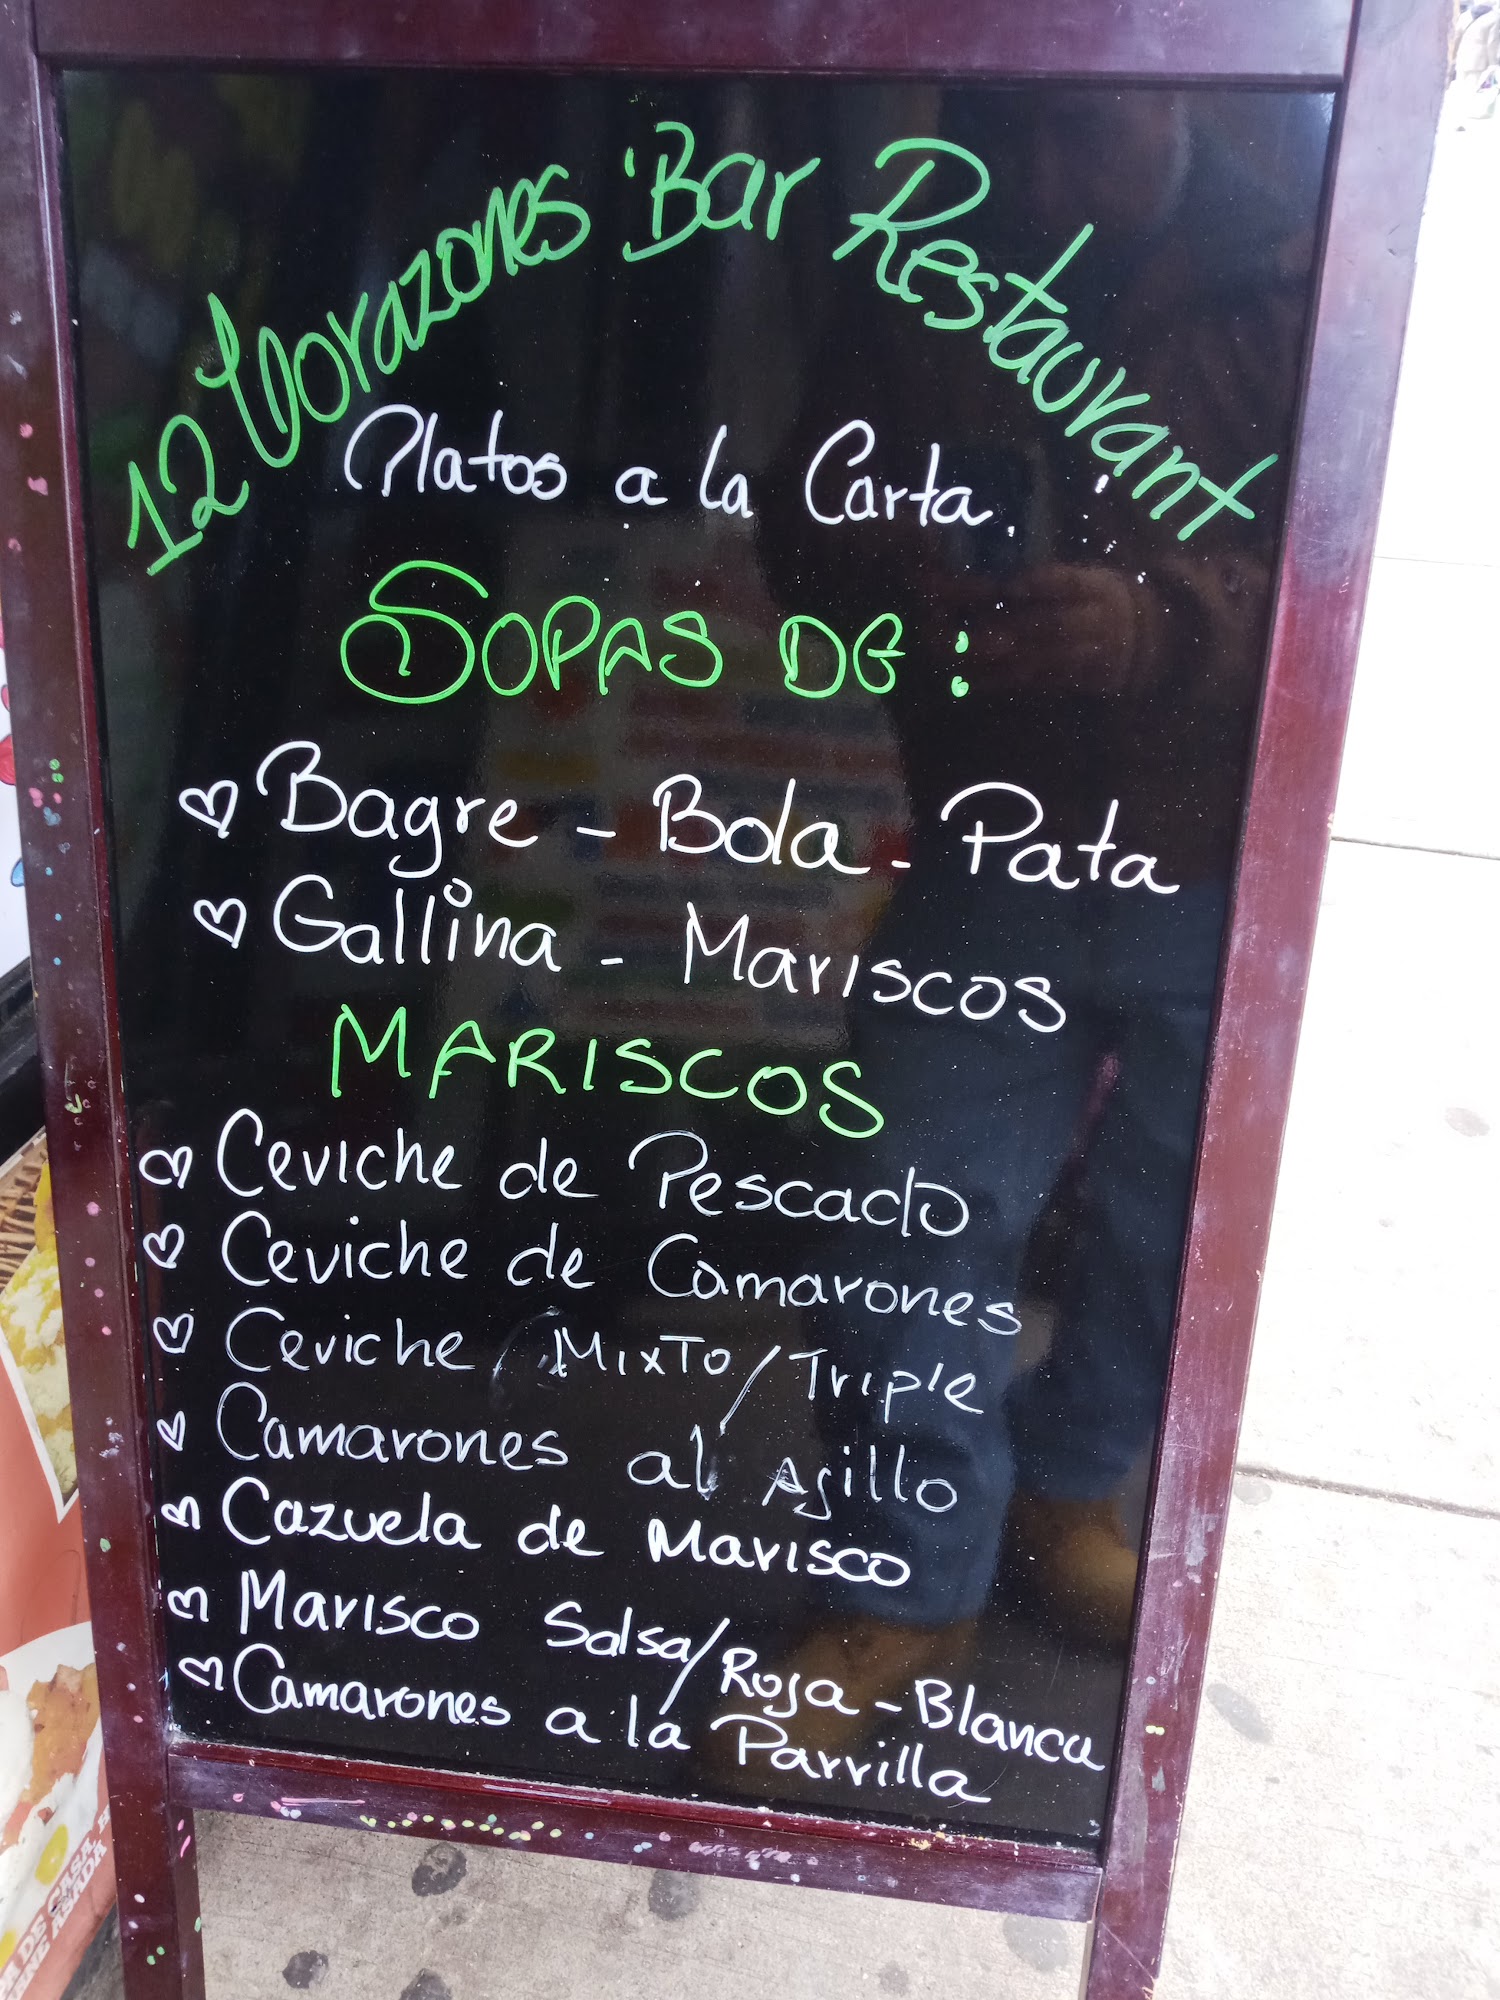 12 Corazones Bar Restaurant
Platos a la Carta.
SOPAS DE:
Bagre - Bola - Pata
Gallina - Mariscos
MARISCOS
Ceviche de Pescado
Ceviche de Camarones
Ceviche / Mixto / Triple
Camarones al Ajillo
Cazuela de Marisco
Marisco Salsa/Roja - Blanca
Camarones a la Parrilla
DE CASA